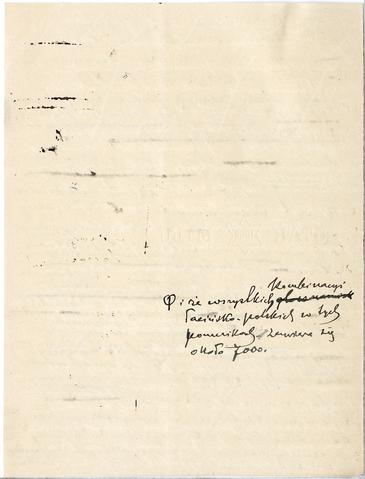 kombinacyi
Φ i że wszystkich
łacińsko-polskich w tych
pomnikach zawiera się
około 7000.